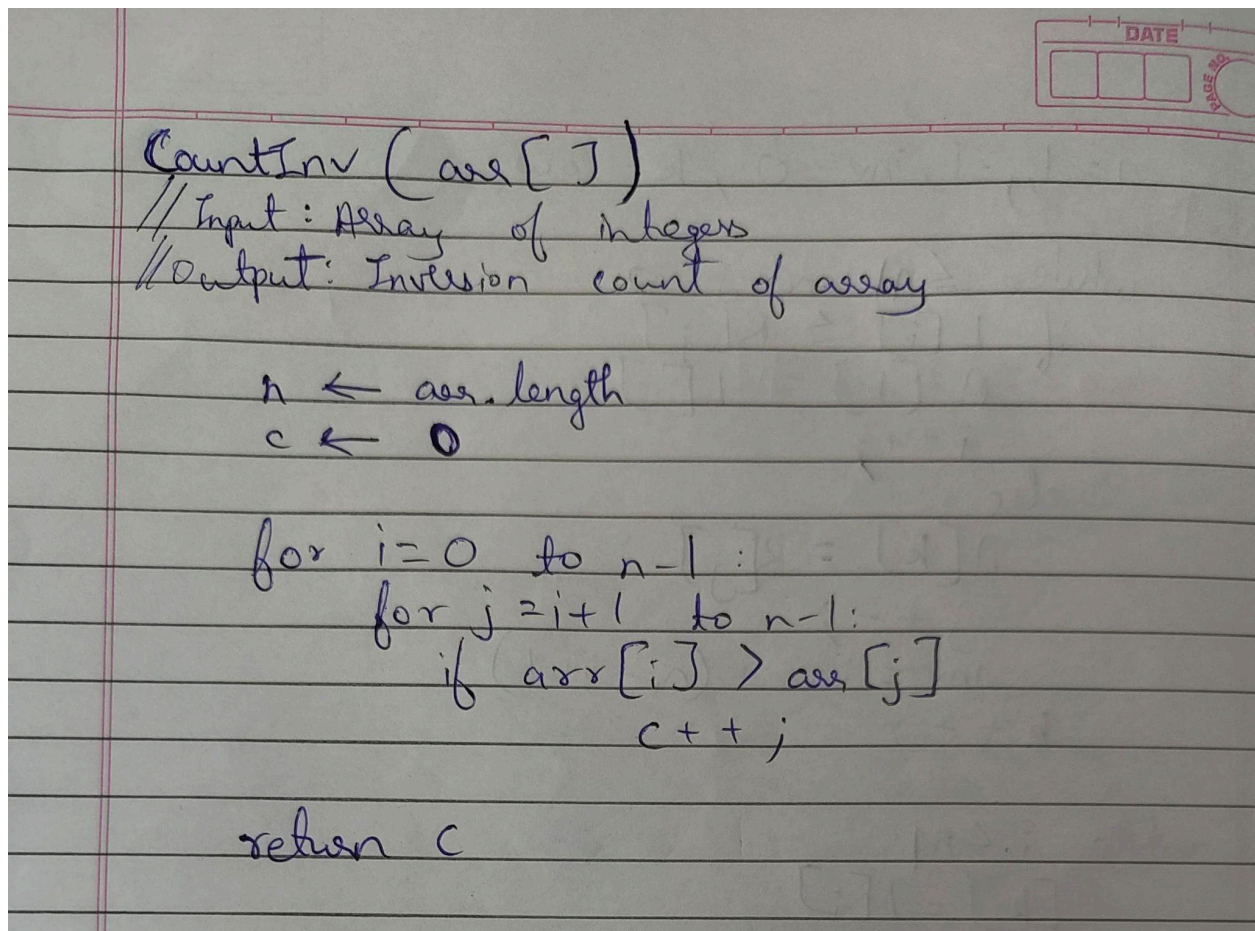 DATE
PAGE NO.
CountInv ( arr [ ] )
// Input : Array of integers
// Output : Inversion count of array
n ← arr. length
c ← 0
for i = 0 to n-1 :
for j = i+1 to n-1 :
if arr [i] > arr [j]
c++ ;
return c